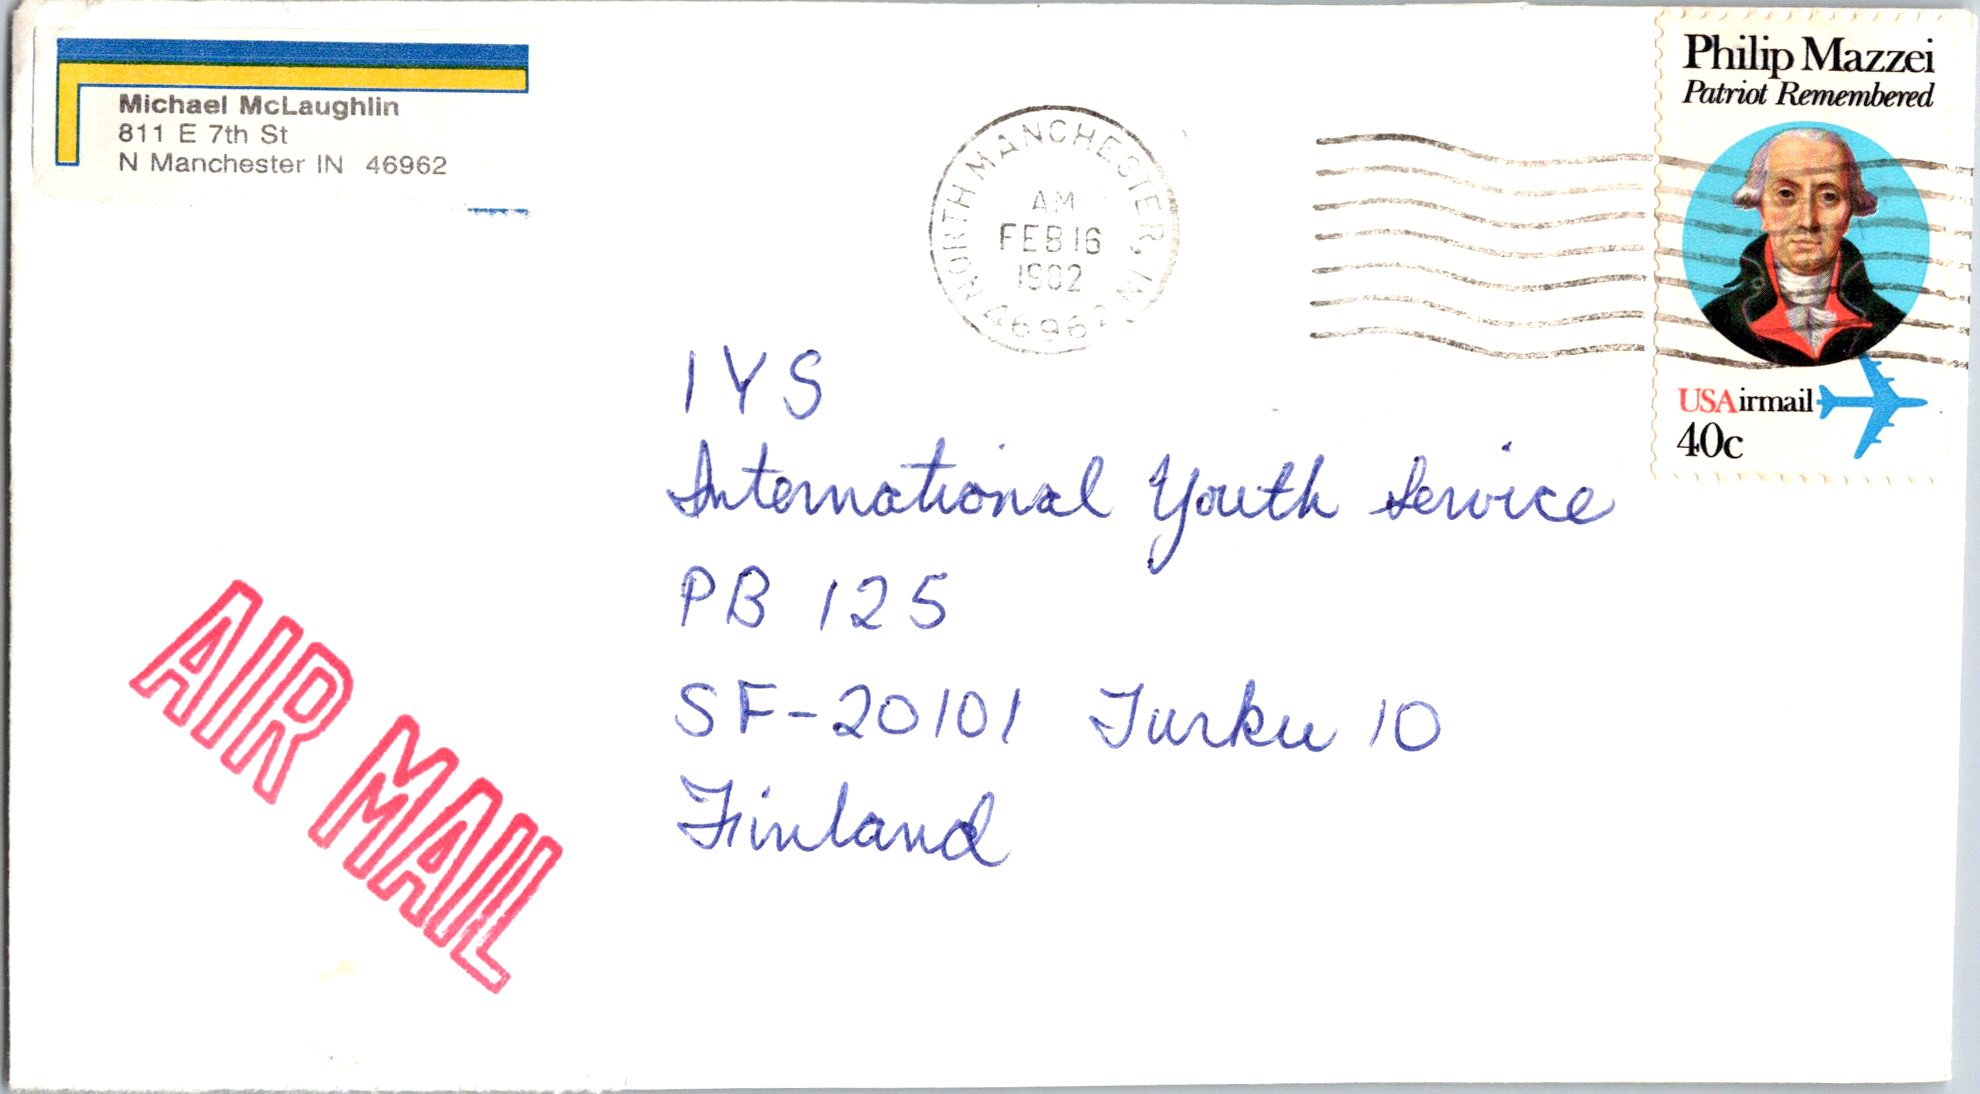 Michael McLaughlin
811 E 7th St
N Manchester IN 46962
NORTH MANCHESTER, IN
AM
FEB 16
1982
46962
Philip Mazzei
Patriot Remembered
USAirmail
40c
IYS
International Youth Service
PB 125
SF-20101 Turku 10
Finland
AIR MAIL